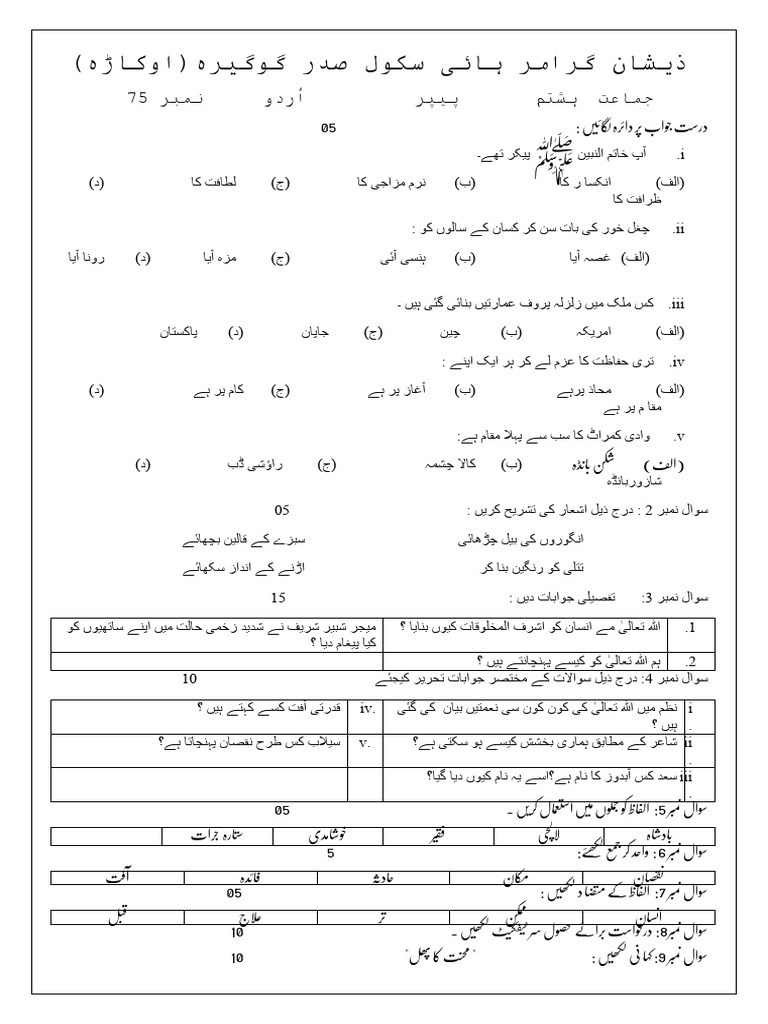 ذیشان گرامر ہائی سکول صدر گوگیرہ (اوکاڑہ)
جماعت ہشتم پیپر اُردو نمبر 75
درست جواب پر دائرہ لگائیں : 05
i. آپ خاتم النبین ﷺ پیکر تھے۔
(الف) انکسا ر کا (ب) نرم مزاجی کا (ج) لطافت کا (د)
ظرافت کا
ii. چغل خور کی بات سن کر کسان کے سالوں کو :
(الف) غصہ آیا (ب) ہنسی آئی (ج) مزہ آیا (د) رونا آیا
iii. کس ملک میں زلزلہ پروف عمارتیں بنائی گئی ہیں ۔
(الف) امریکہ (ب) چین (ج) جاپان (د) پاکستان
iv. تری حفاظت کا عزم لے کر ہر ایک اپنے :
(الف) محاذ پرہے (ب) آغاز پر ہے (ج) کام پر ہے (د)
مقا م پر ہے
v. وادی کمراٹ کا سب سے پہلا مقام ہے:
(الف ) شکن بانڈہ (ب) کالا چشمہ (ج) راؤشی ڈب (د)
شازوربانڈہ
سوال نمبر 2 : درج ذیل اشعار کی تشریح کریں : 05
انگوروں کی بیل چڑھائی سبزے کے قالین بچھائے
تتلی کو رنگین بنا کر اڑنے کے انداز سکھائے
سوال نمبر 3: تفصیلی جوابات دیں : 15
1. اللہ تعالیٰ مے انسان کو اشرف المخلوقات کیوں بنایا ؟ میجر شبیر شریف نے شدید زخمی حالت میں اپنے ساتھیوں کو
کیا پیغام دیا ؟
2. ہم اللہ تعالیٰ کو کیسے پہنچانتے ہیں ؟
سوال نمبر 4: درج ذیل سوالات کے مختصر جوابات تحریر کیجئے 10
i. نظم میں اللہ تعالیٰ کی کون کون سی نعمتیں بیان کی گئی iv. قدرتی آفت کسے کہتے ہیں ؟
ہیں ؟
ii. شاعر کے مطابق ہماری بخشش کیسے ہو سکتی ہے؟ v. سیلاب کس طرح نقصان پہنچاتا ہے؟
iii. سعد کس آبدوز کا نام ہے؟اسے یہ نام کیوں دیا گیا؟
سوال نمبر5: الفاظ کو جملوں میں استعمال کریں ۔ 05
بادشاہ لالچی فقیر خوشامدی ستارہ جرات
سوال نمبر6: واحد کر جمع لکھئے: 5
نقصان مکان حادثہ فائدہ آفت
سوال نمبر7: الفاظ کے متضاد لکھیں : 05
انسان ممکن تر علاج قبل
سوال نمبر8: درخواست برائے حصول سرٹیفکیٹ لکھیں ۔ 10
سوال نمبر9: کہانی لکھیں : "محنت کا پھل" 10